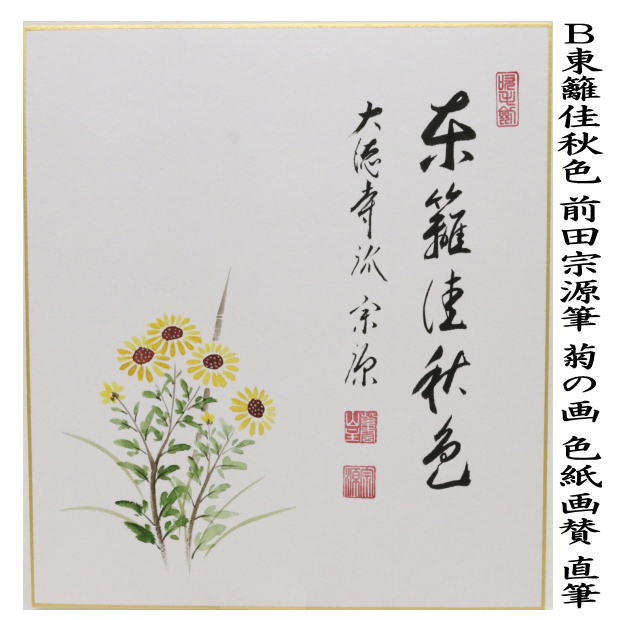 B東籬佳秋色 前田宗源筆 菊の画 色紙画賛 直筆
東籬佳秋色
大徳寺派 宗源
宗源